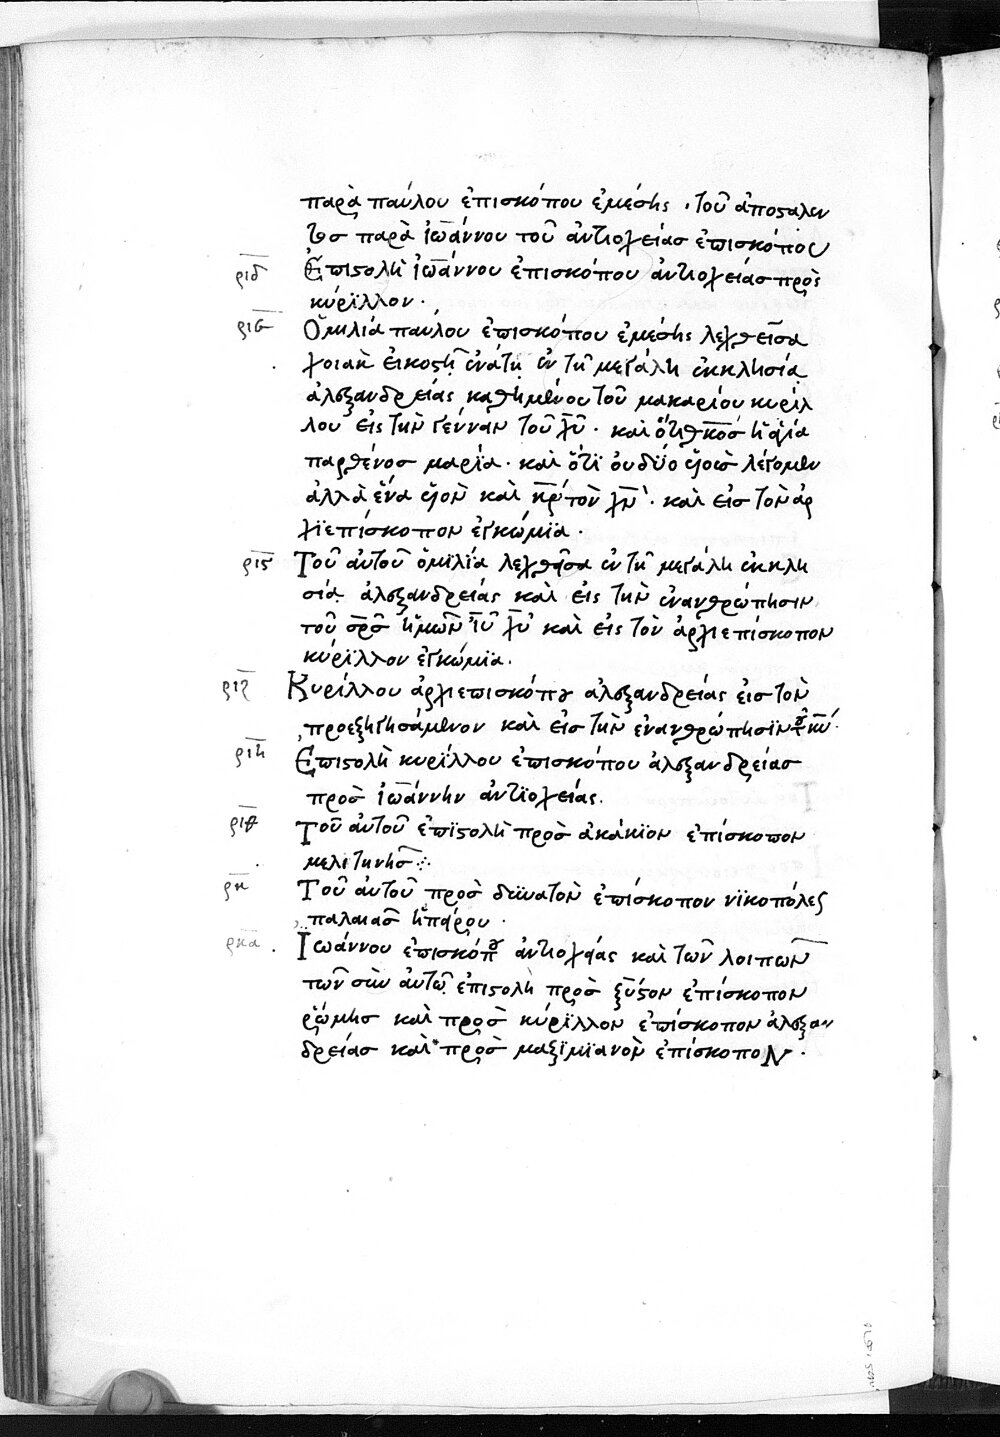 παρὰ παύλου ἐπισκόπου ἐμέσης · τοῦ ἀποσταλεν
τος παρὰ ἰω̅άννου τοῦ ἀντιοχείασ ἐπισκόπου
ριδ Ἐπιστολὴ ἰω̅άννου ἐπισκόπου ἀντιοχείασ πρὸς
κύρϊλλον ·
ριε Ὁμιλία παύλου ἐπισκόπου ἐμέσης λεχθεῖσα
χοιακ εἰκοστῇ ἐνάτῃ ἐν τῇ μεγάλη ἐκκλησία
ἀλεξανδρείας καθημένου τοῦ μακαρίου κυρίλ
λου εἰς τὴν γένναν τοῦ χ̅υ̅ · καὶ ὅτι θ̅κ̅οσ ἡ ἁγία
παρθένοσ μαρία · καὶ ὅτϊ οὐ δύο υἱοὺσ λέγομεν
ἀλλὰ ἕνα υἱὸν καὶ κ̅ν̅ τὸν χ̅ν̅ · καὶ εἰσ τὸν ἀρ
χϊεπίσκοπον ἐγκώμϊα ·
ριϛ Τοῦ αὐτοῦ ὁμιλία λεχθεῖσα ἐν τῇ μεγάλη ἐκκλη
σία ἀλεξανδρείας καὶ εἰς τὴν ἐνανθρώπησιν
τοῦ σ̅ρ̅σ̅ ἡμῶν ι̅υ̅ χ̅υ̅ καὶ εἰς τὸν ἀρχιεπίσκοπον
κύρϊλλον ἐγκώμϊα ·
ριζ Κυρίλλου ἀρχιεπισκόπου ἀλεξανδρείας εἰσ τὸν
προεξηγησάμενον καὶ εἰσ τὴν ἐνανθρώπησϊν τοῦ κ̅υ̅ ·
ριη Ἐπιστολὴ κυρίλλου ἐπισκόπου ἀλεξανδρείασ
πρὸσ ἰω̅άννην ἀντϊοχείας.
ριθ Τοῦ αὐτοῦ ἐπϊστολὴ πρὸσ ἀκάκϊον ἐπίσκοπον
μελιτινῆσ
ρκ Τοῦ αὐτοῦ πρὸσ δωνατὸν ἐπίσκοπον νϊκοπόλεως
παλαιᾶσ ἠπείρου ·
ρκα Ἰωάννου ἐπισκόπου ἀντιοχείας καὶ τῶν λοιπῶν
τῶν σὺν αὐτῷ ἐπιστολὴ πρὸσ ξύστον ἐπίσκοπον
ῥώμησ καὶ πρὸσ κύρϊλλον ἐπίσκοπον ἀλεξαν
δρείασ καὶ πρὸσ μαξϊμϊανὸν ἐπίσκοπον ·